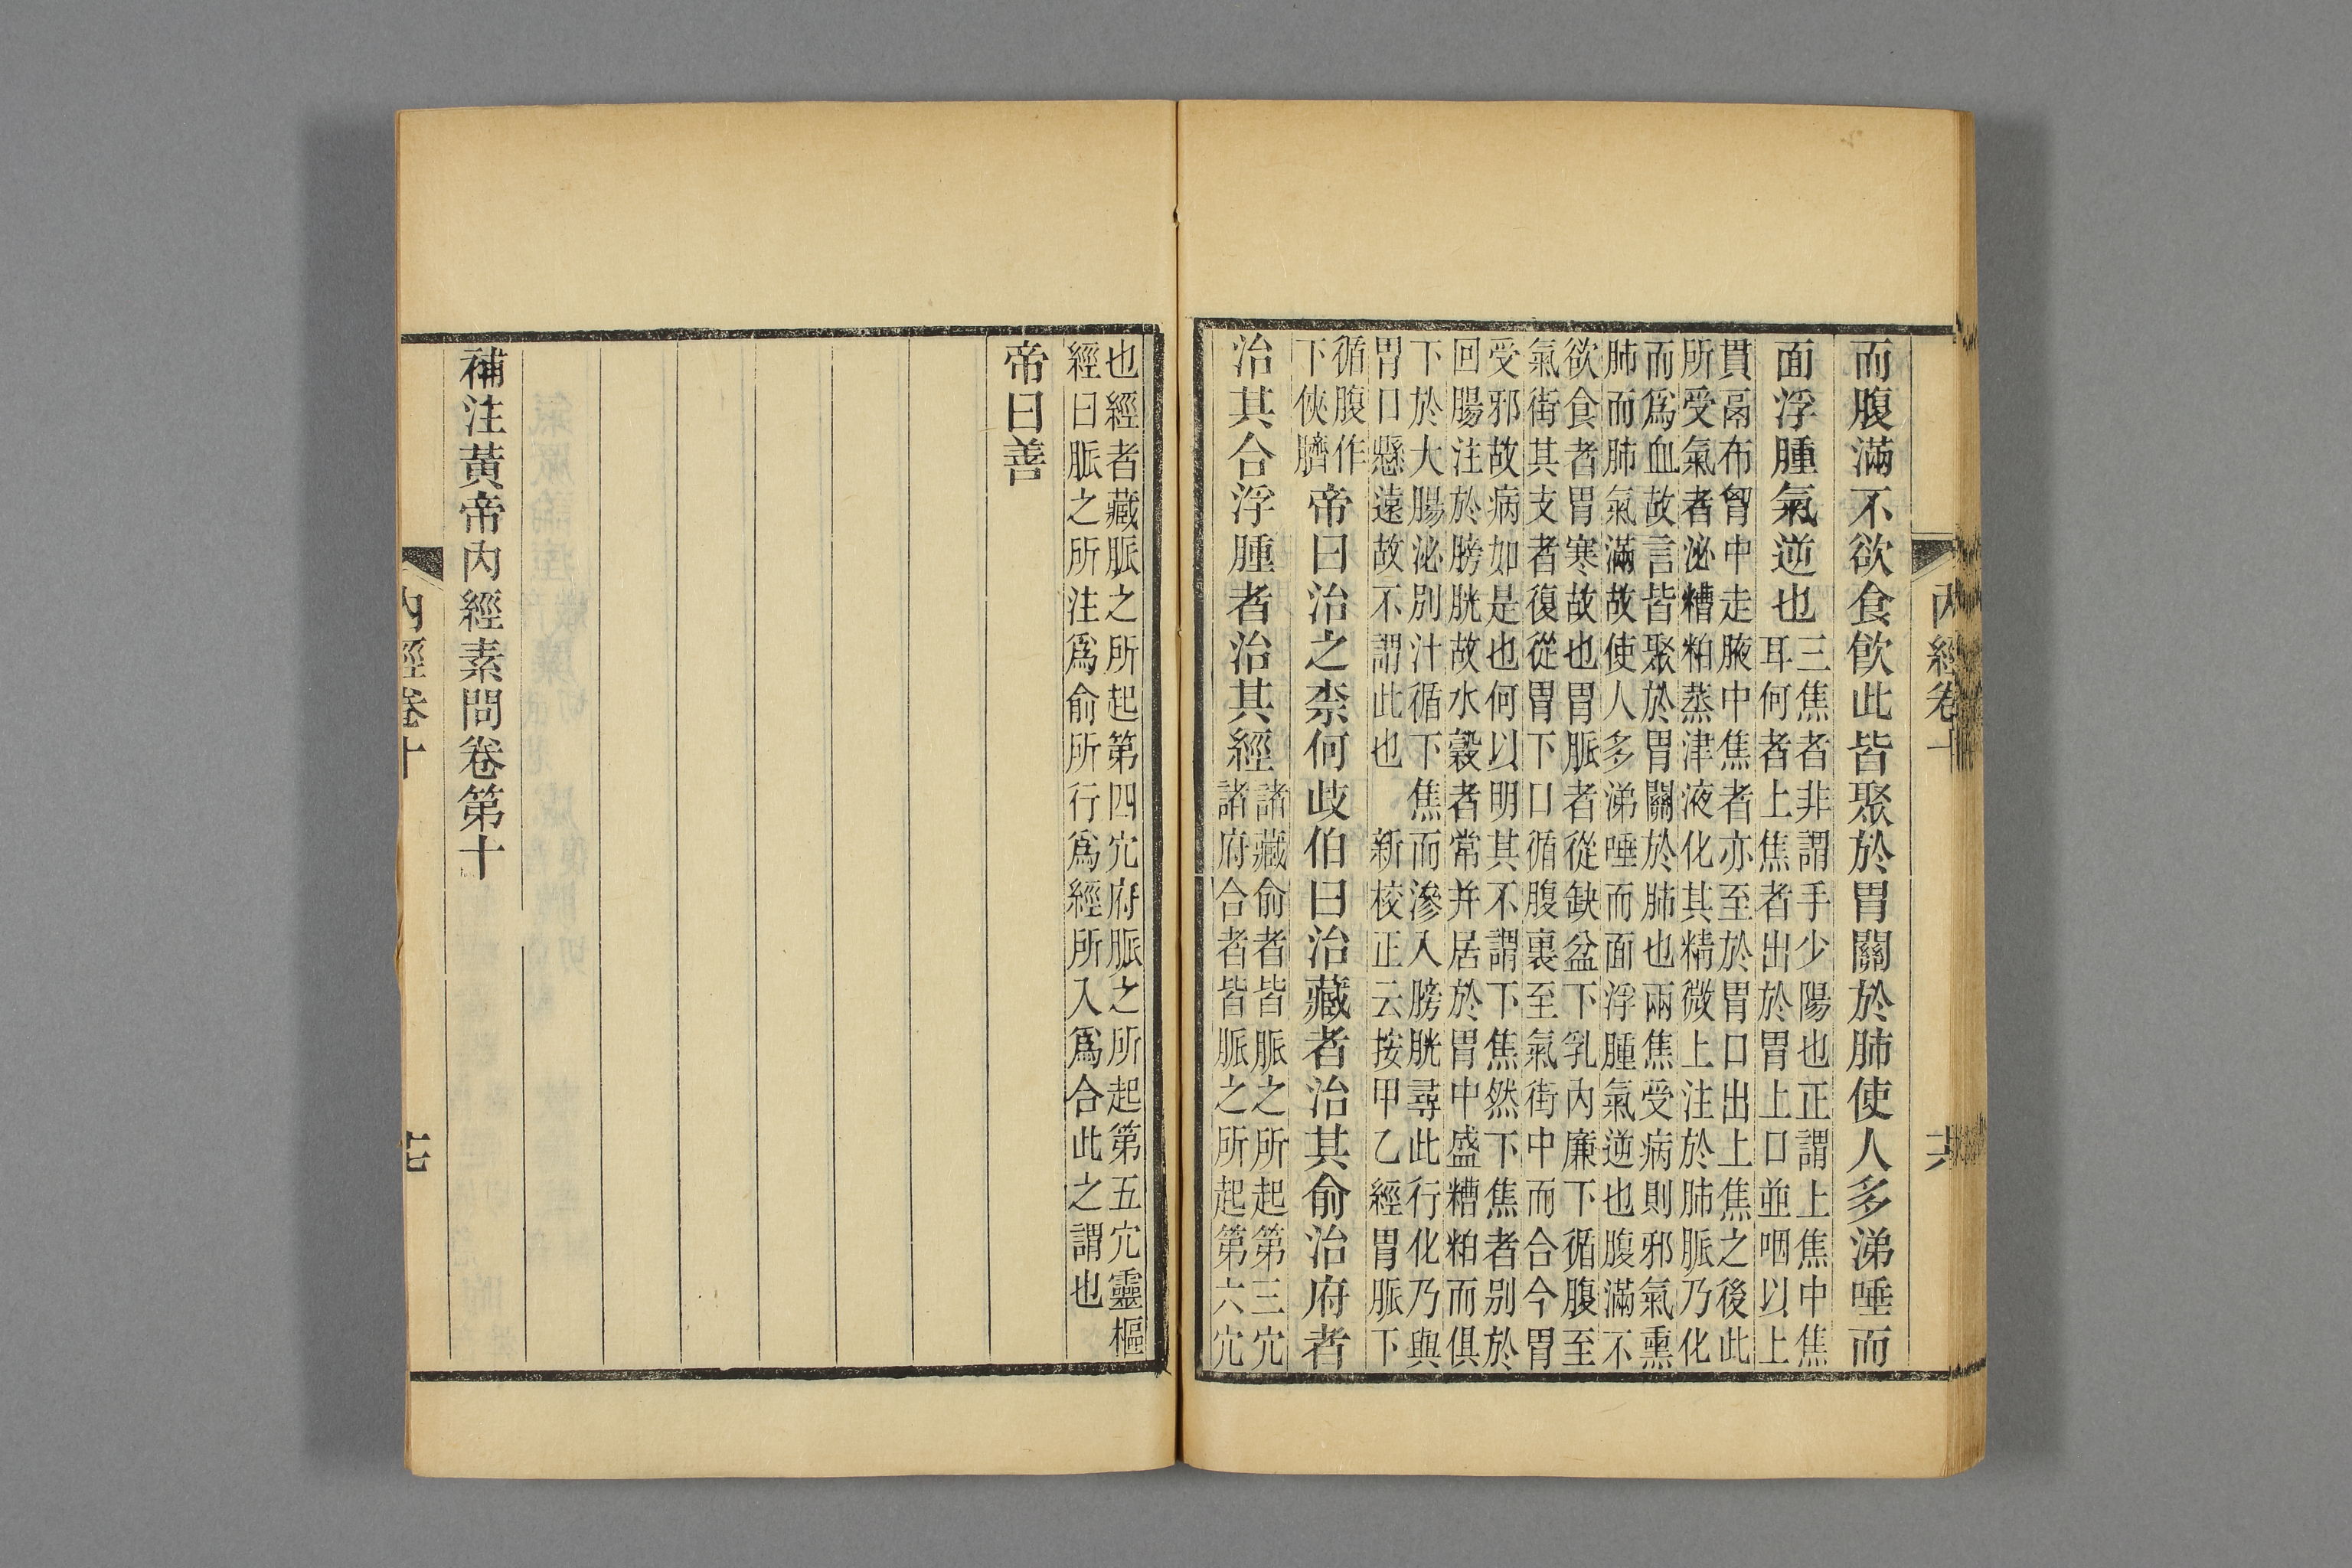 而腹滿不欲食飮此皆聚於胃關於肺使人多涕唾而
面浮腫氣逆也三焦者非謂手少陽也正謂上焦中焦
耳何者上焦者出於胃上口並咽以上
貫鬲布胷中走腋中焦者亦至於胃口出上焦之後此
所受氣者泌糟粕蒸津液化其精微上注於肺脈乃化
而爲血故言皆聚於胃關於肺也兩焦受病則邪氣熏
肺而肺氣滿故使人多涕唾而面浮腫氣逆也腹滿不
欲食者胃寒故也胃脈者從缺盆下乳內廉下循腹至
氣街其支者復從胃下口循腹裏至氣街中而合今胃
受邪故病如是也何以明其不謂下焦然下焦者别於
回腸注於膀胱故水穀者常并居於胃中盛糟粕而俱
下於大腸泌別汁循下焦而滲入膀胱尋此行化乃與
胃口懸遠故不謂此也 新校正云按甲乙經胃脈下
循腹作
下俠臍帝曰治之柰何歧伯曰治藏者治其俞治府者
治其合浮腫者治其經諸藏俞者皆脈之所起第三穴
諸府合者皆脈之所起第六穴
也經者藏脈之所起第四穴府脈之所起第五穴靈樞
經曰脈之所注爲俞所行爲經所入爲合此之謂也
帝曰善
補注黃帝內經素問卷第十
內經卷十